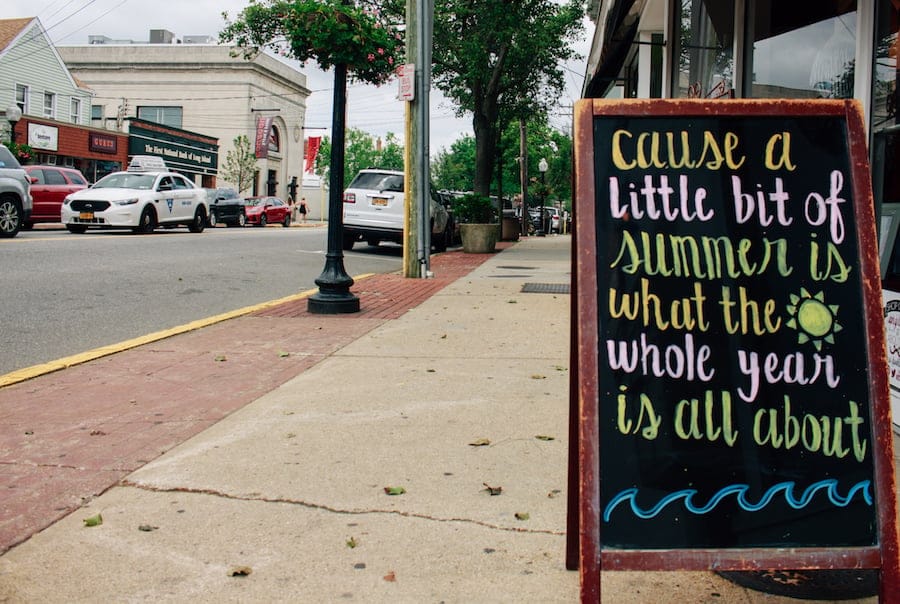 cause a
little bit of
summer is
what the
whole year
is all about
The First National Bank of Long Island